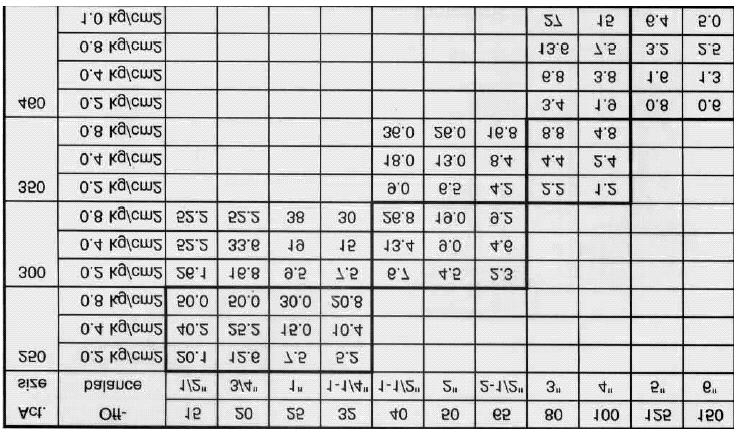 Act. Off- 15 20 25 32 40 50 65 80 100 125 150
size balance 1/2" 3/4" 1" 1-1/4" 1-1/2" 2" 2-1/2" 3" 4" 5" 6"
250 0.2 kg/cm2 20.1 12.6 7.5 5.2
0.4 kg/cm2 40.2 25.2 15.0 10.4
0.8 kg/cm2 50.0 50.0 30.0 20.8
300 0.2 kg/cm2 26.1 16.8 9.5 7.5 6.7 4.5 2.3
0.4 kg/cm2 52.2 33.6 19 15 13.4 9.0 4.6
0.8 kg/cm2 52.2 52.2 38 30 26.8 19.0 9.2
350 0.2 kg/cm2 9.0 6.5 4.2 2.2 1.2
0.4 kg/cm2 18.0 13.0 8.4 4.4 2.4
0.8 kg/cm2 36.0 26.0 16.8 8.8 4.8
460 0.2 kg/cm2 3.4 1.9 0.8 0.6
0.4 kg/cm2 6.8 3.8 1.6 1.3
0.8 kg/cm2 13.6 7.5 3.2 2.5
1.0 kg/cm2 27 15 6.4 5.0